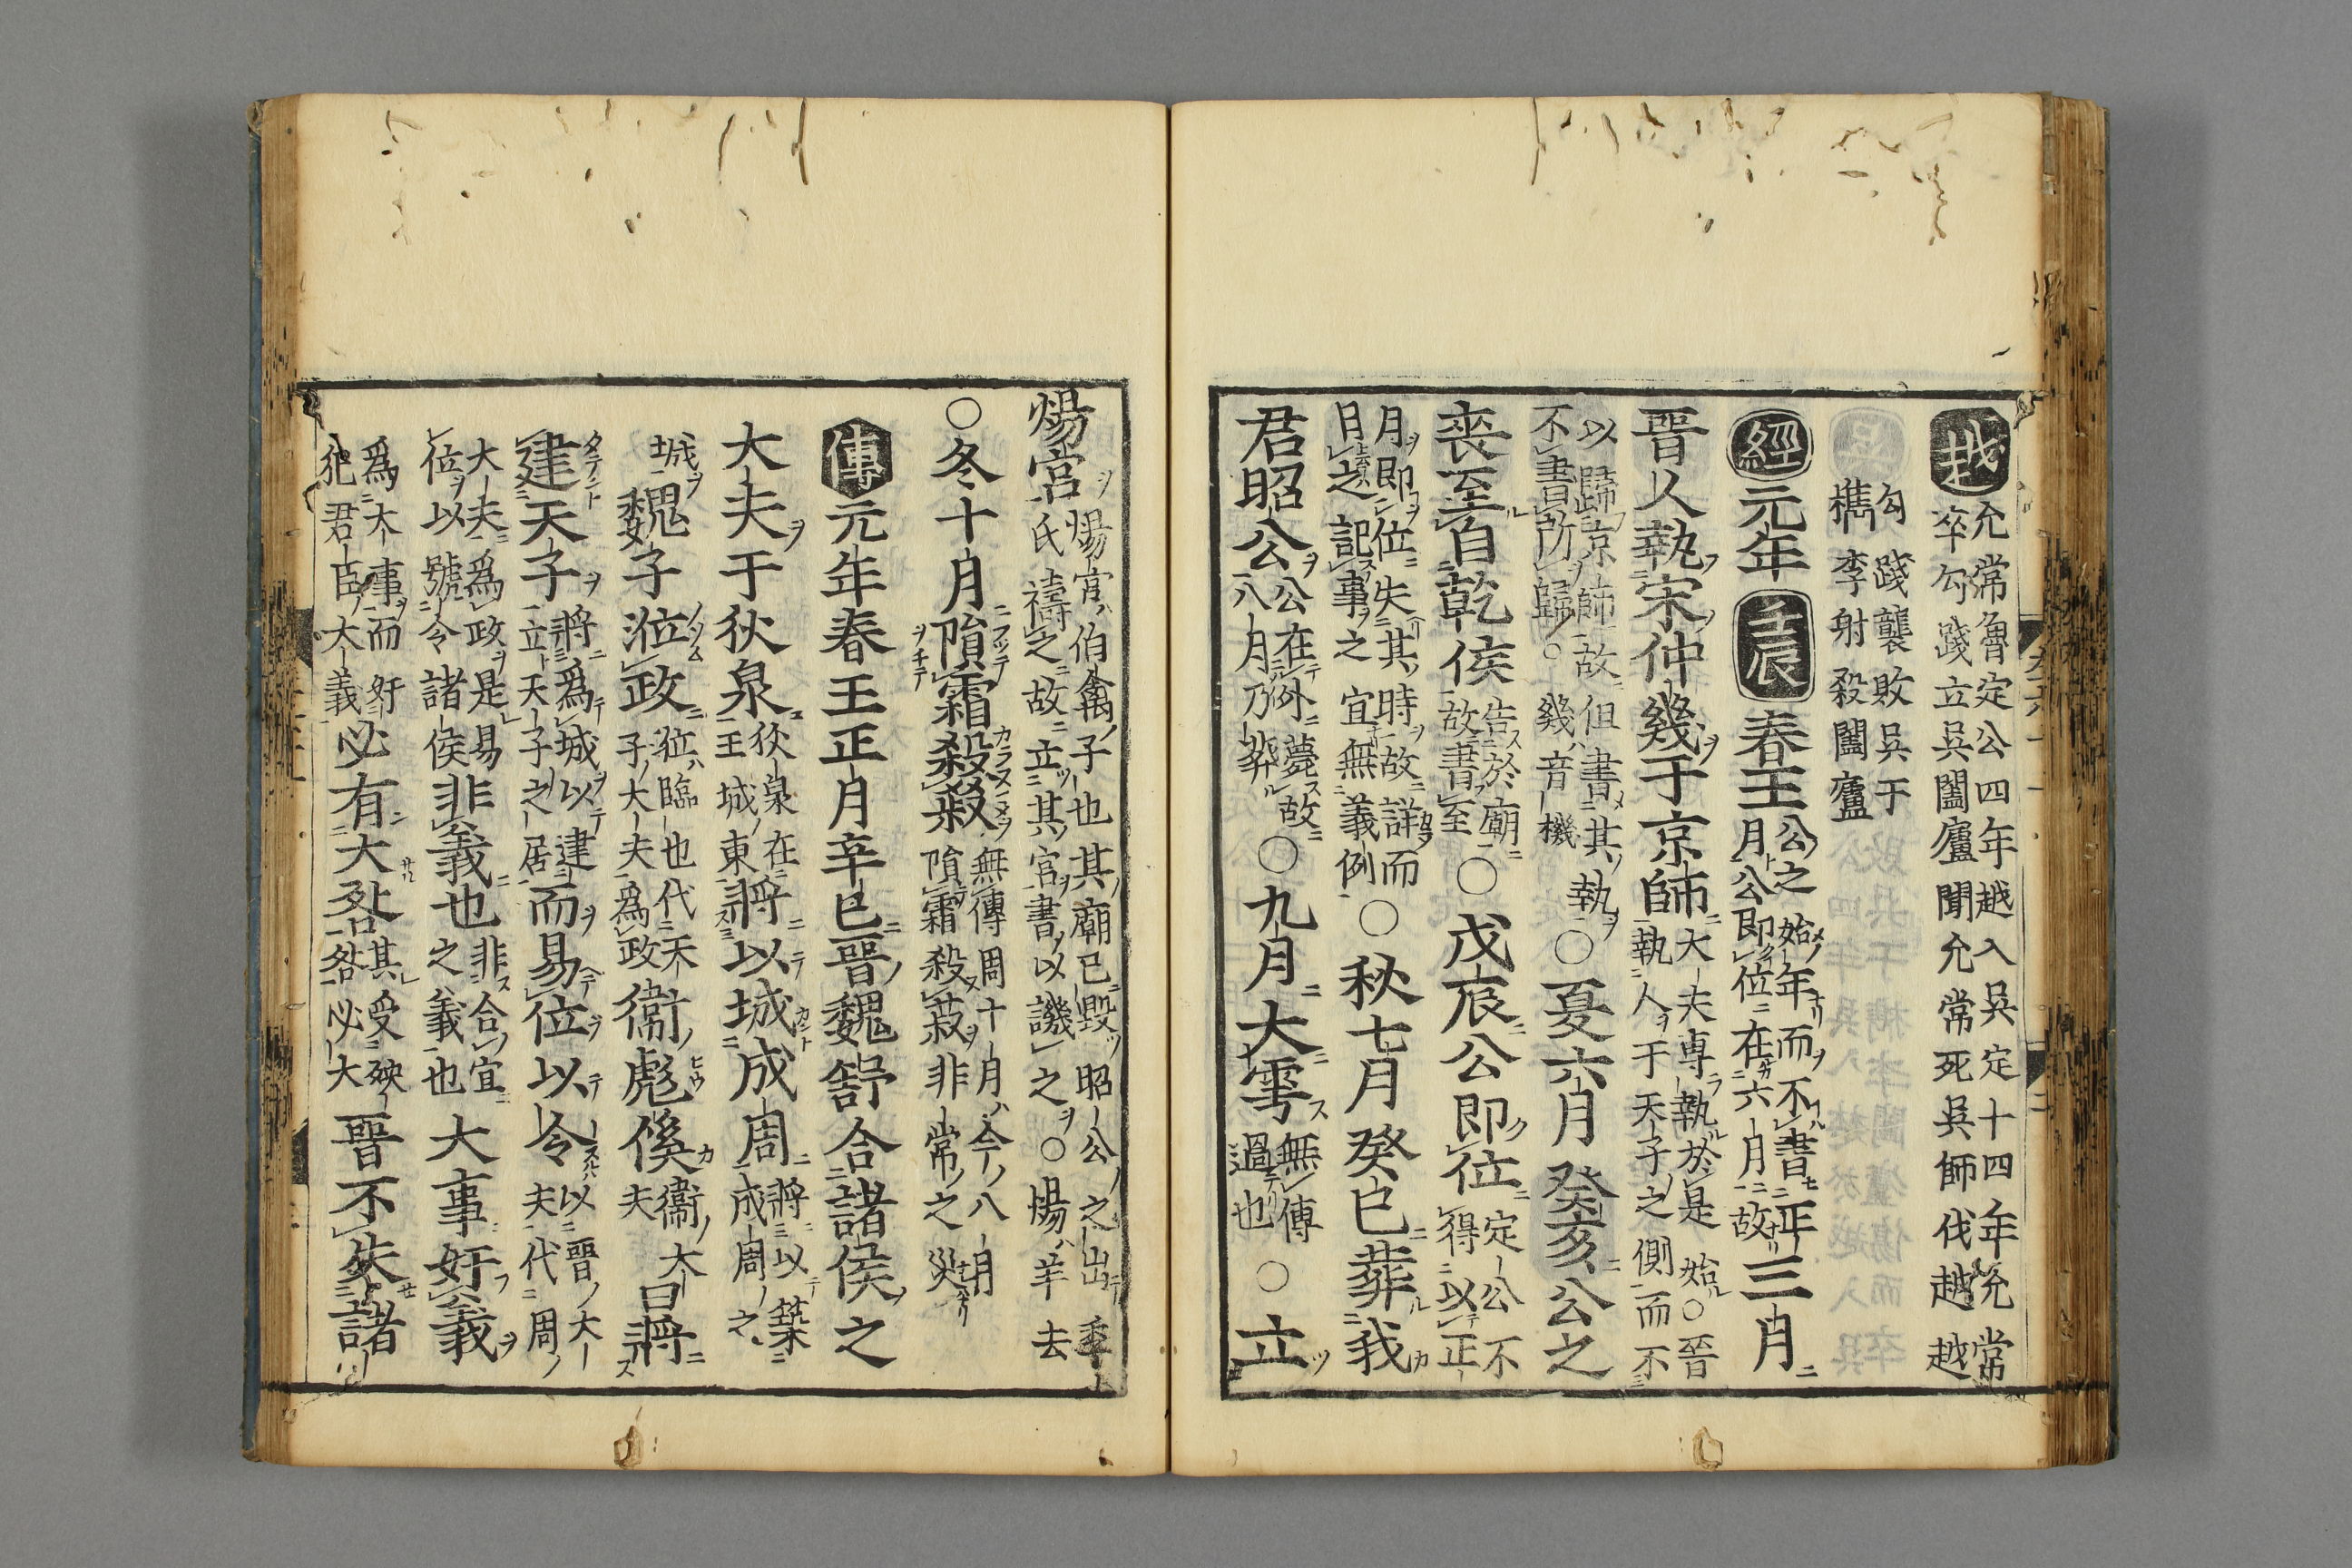 越 允常魯定公四年越入吳定十四年允常
卒勾踐立吳闔廬聞允常死吳師伐越越
勾踐襲敗吳于
檇李射殺闔廬
經 元年 壬辰 春王 公之始年而不書正
月公即位在六月故 三月
晉人執宋仲幾于京師 大夫專執於是始〇晉
執人于天子之側而不
以歸京師故但書其執
不書所歸〇幾音機 〇夏六月癸亥公之
喪至自乾侯 告於廟
故書至 〇戊辰公即位 定公不
得以正
月即位失其時故詳而
月之記事之宜無義例 〇秋七月癸巳葬我
君昭公 公在外薨故
八月乃葬 〇九月大雩 無傳
過也 〇立
煬宮 煬宮伯禽子也其廟已毀昭公之出季
氏禱之故立其宮書以譏之〇煬羊去
〇冬十月隕霜殺菽 無傳周十月今八月
隕霜殺菽非常之災
傳 元年春王正月辛巳晉魏舒合諸侯之
大夫于狄泉 狄泉在
王城東 將以城成周 將以築
成周之
城 魏子涖政 涖臨也代天
子大夫為政 衞彪傒 衞大
夫 曰將
建天子 將為城以建
立天子之居 而易位以令 以晉大
夫代周
大夫為政是易
位以號令諸侯 非義也 非合宜
之義也 大事奸義
為大事而奸
犯君臣大義 必有大咎 其受殃
咎必大 晉不失諸